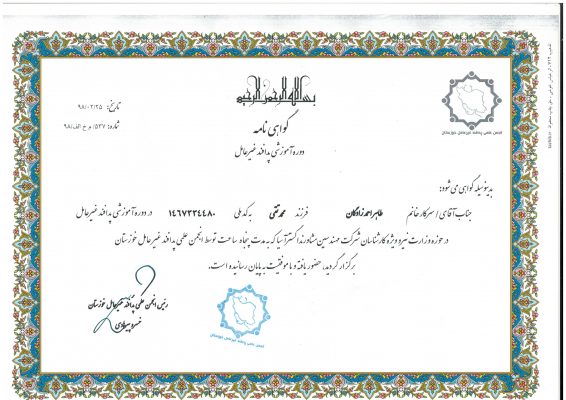 بسم الله الرحمن الرحیم
تاریخ: ۹۸/۰۲/۲۵
شماره: ۵۳۷/م خ الف/۹۸
گواهی نامه
دوره آموزشی پدافند غیرعامل
انجمن علمی پدافند غیرعامل خوزستان
بدینوسیله گواهی می شود:
جناب آقای / سرکار خانم طاهر احمدزادگان فرزند محمدتقی به کد ملی ۱۴۶۷۳۳۴۴۸۰ در دوره آموزشی پدافند غیرعامل
در حوزه وزارت نیرو ویژه کارشناسان شرکت مهندسین مشاور زند اکستر آسیا که به مدت پنجاه ساعت توسط انجمن علمی پدافند غیرعامل خوزستان
برگزار گردید، حضور یافته و با موفقیت به پایان رسانیده است.
رئیس انجمن علمی پدافند غیرعامل خوزستان
انجمن علمی پدافند غیرعامل خوزستان